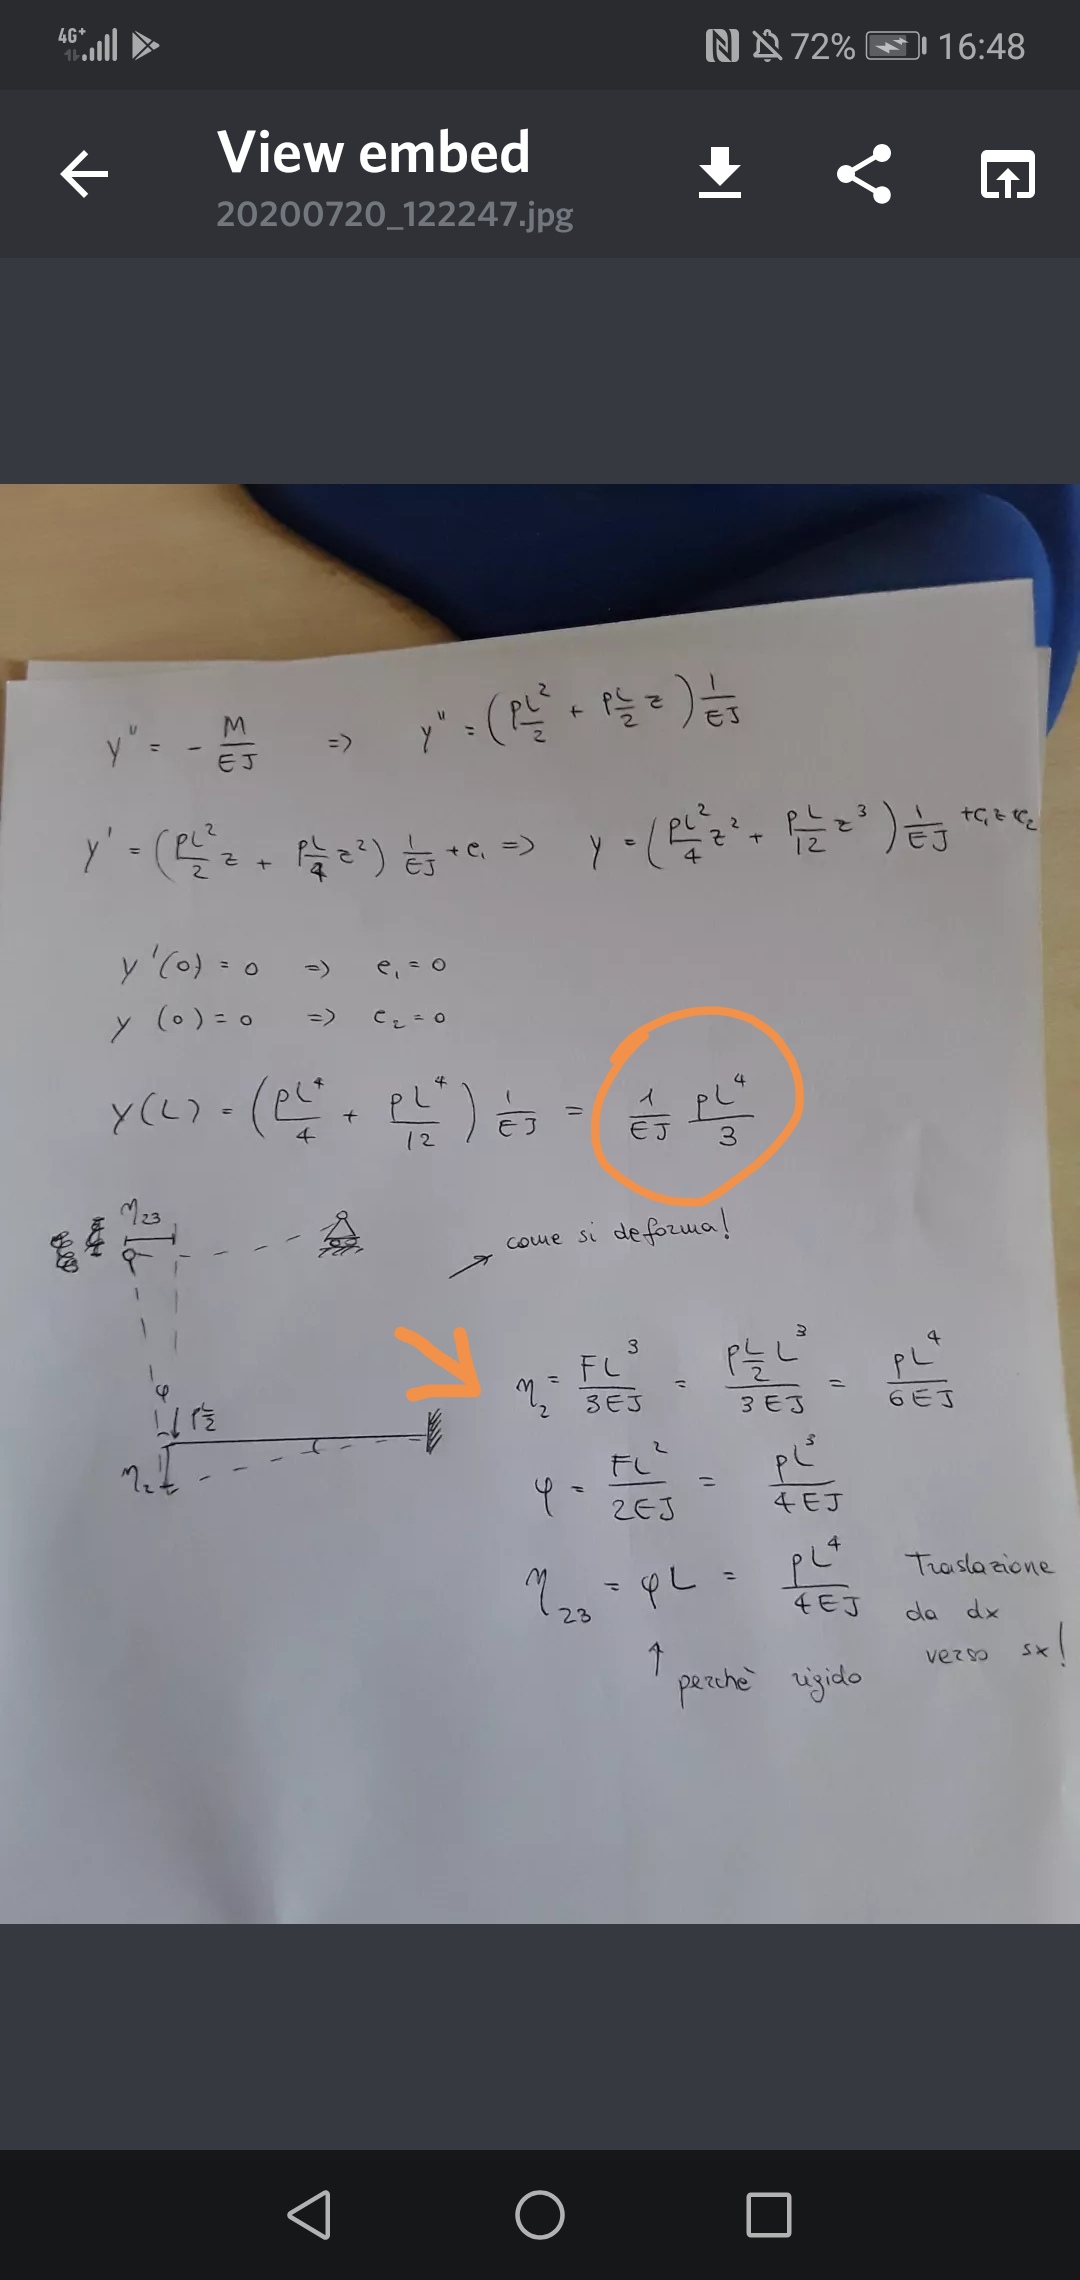 4G+ 72% 16:48
View embed
20200720_122247.jpg
y'' = - M/EJ => y'' = (pL²/2 + pL/2 z) 1/EJ
y' = (pL²/2 z + pL/4 z²) 1/EJ + c₁ => y = (pL²/4 z² + pL/12 z³) 1/EJ + c₁z + c₂
y'(0) = 0 => c₁ = 0
y(0) = 0 => c₂ = 0
y(L) = (pL⁴/4 + pL⁴/12) 1/EJ = 1/EJ pL⁴/3
η₂₃
come si deforma!
η₂ = FL³/3EJ = p L/2 L³/3EJ = pL⁴/6EJ
φ
p L/2
η₂
φ = FL²/2EJ = pL³/4EJ
η₂₃ = φL = pL⁴/4EJ Traslazione
da dx
verso sx!
↑ perchè rigido